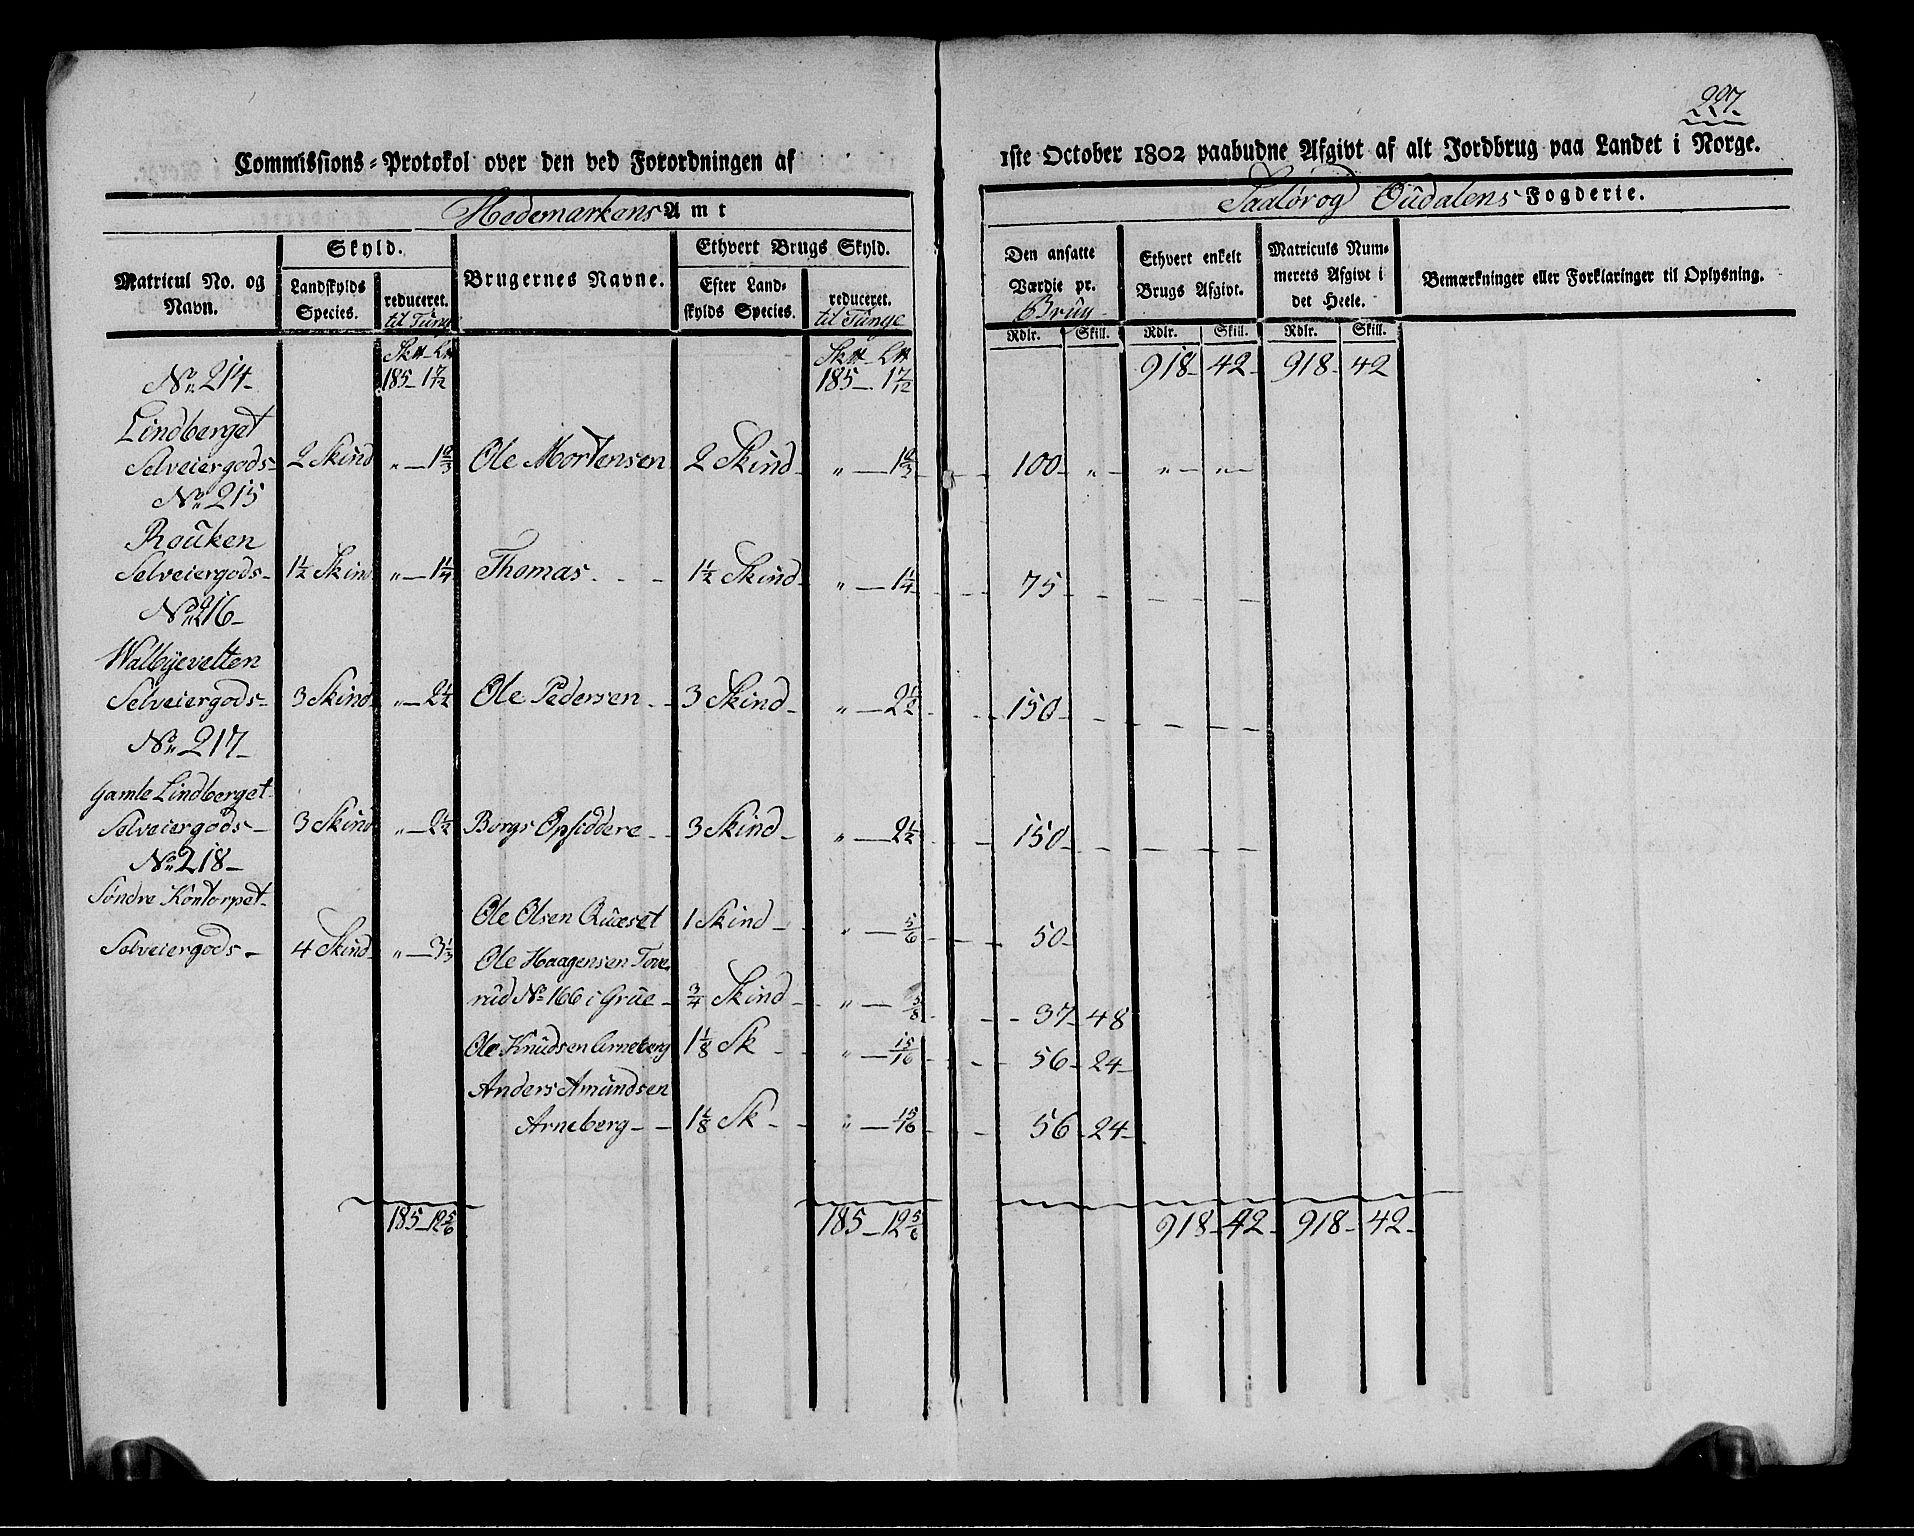 227
Commissions-Protokol over den ved Forordningen af 1ste October 1802 paabudne Afgivt af alt Jordbrug paa Landet i Norge.
Hedemarkens Amt
Soløer og Oudalens Fogderie.
Matricul No. og Navn.
Skyld.
Landskylds Species.
reduceret. til Tunge
Brugernes Navne.
Ethvert Brugs Skyld.
Efter Landskylds Species.
reduceret. til Tunge
Den ansatte Værdie pr. Brug
Rdlr. Skill.
Ethvert enkelt Brugs Afgivt.
Rdlr. Skill.
Matriculs Nummerets Afgivt i det Heele.
Rdlr. Skill.
Bemærkninger eller Forklaringer til Oplysning.
No 214 185 - 1 7/12 185 - 1 7/12 918 - 42 - 918 - 42
Lindberget
Selveiergods - 2 Skind „ - 1 2/3 Ole Mortensen 2 Skind - „ - 1 2/3 100 - „ - „ - „ -
No 215
Rouken
Selveiergods - 1½ Skind „ - 1¼ Thomas - - - 1½ Skind - „ - 1¼ 75
No 216 -
Walbyevelten
Selveiergods - 3 Skind „ - 2½ Ole Pedersen - - 3 Skind - „ - 2½ 150 -
No 217 -
Gamle Lindberget
Selveiergods - 3 Skind „ - 2½ Borgs Opsiddere - - 3 Skind - „ - 2½ 150 -
No 218 -
Søndre Kontorpet -
Ole Olsen Quæset 1 Skind - „ - 5/6 50 -
Selveiergods - 4 Skind - „ - 3⅓ Ole Haagensen Tove-
rud No 166 i Grue - ¾ Skind - „ - 5/8 37 - 48
Ole Knudsen Arneberg 1⅛ Sk - „ - 15/16 56 - 24 -
Anders Amundsen
Arneberg - - 1⅛ Sk - „ - 15/16 56 - 24 -
185 - 12 5/6 185 - 12 5/6 918 - 42 - 918 - 42 -